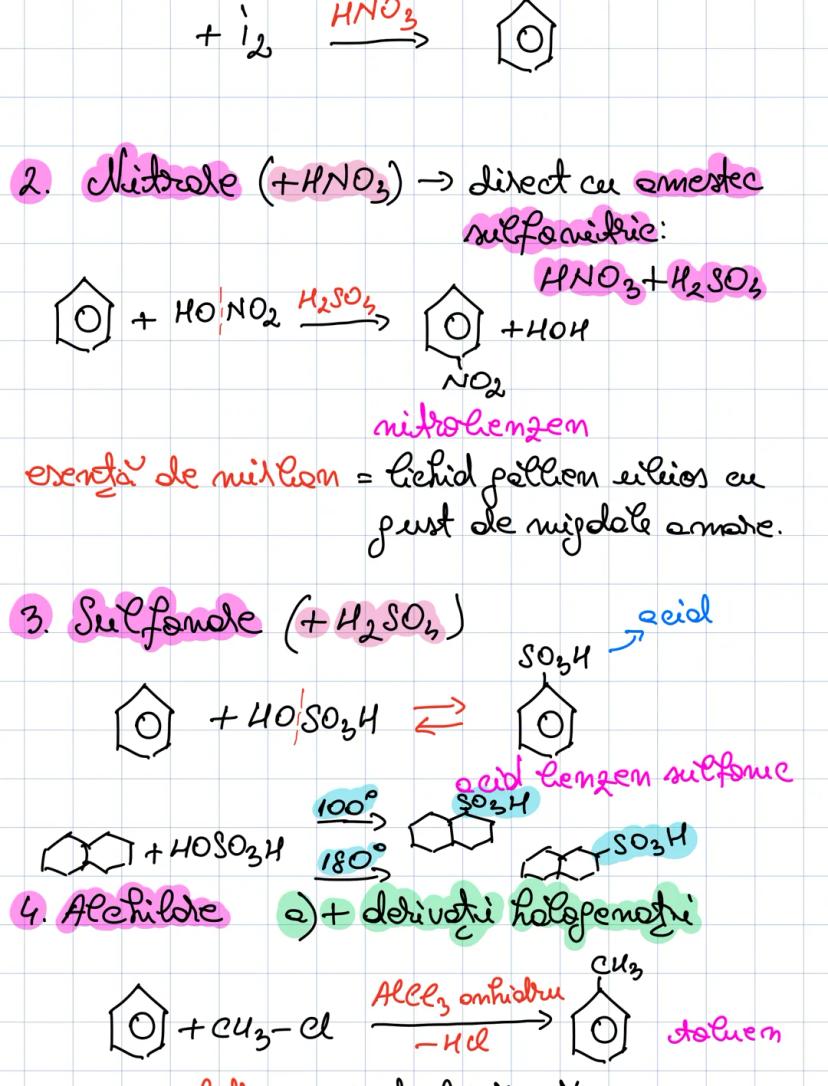 + i₂ HNO₃ →
2. Nitrare (+HNO₃) → direct cu amestec
sulfonitric:
HNO₃+H₂SO₄
+ HO NO₂ H₂SO₄ → +HOH
NO₂
nitrobenzen
esență de mirban = lichid gălben uleios cu
gust de migdale amare.
3. Sulfonare (+H₂SO₄)
acid
SO₃H
+ HO SO₃H ⇌
acid benzen sulfonic
100° SO₃H
+HOSO₃H 180° SO₃H
4. Alchilare a)+ derivați halogenați
CH₃
+ CH₃–Cl AlCl₃ anhidru → toluen
–HCl